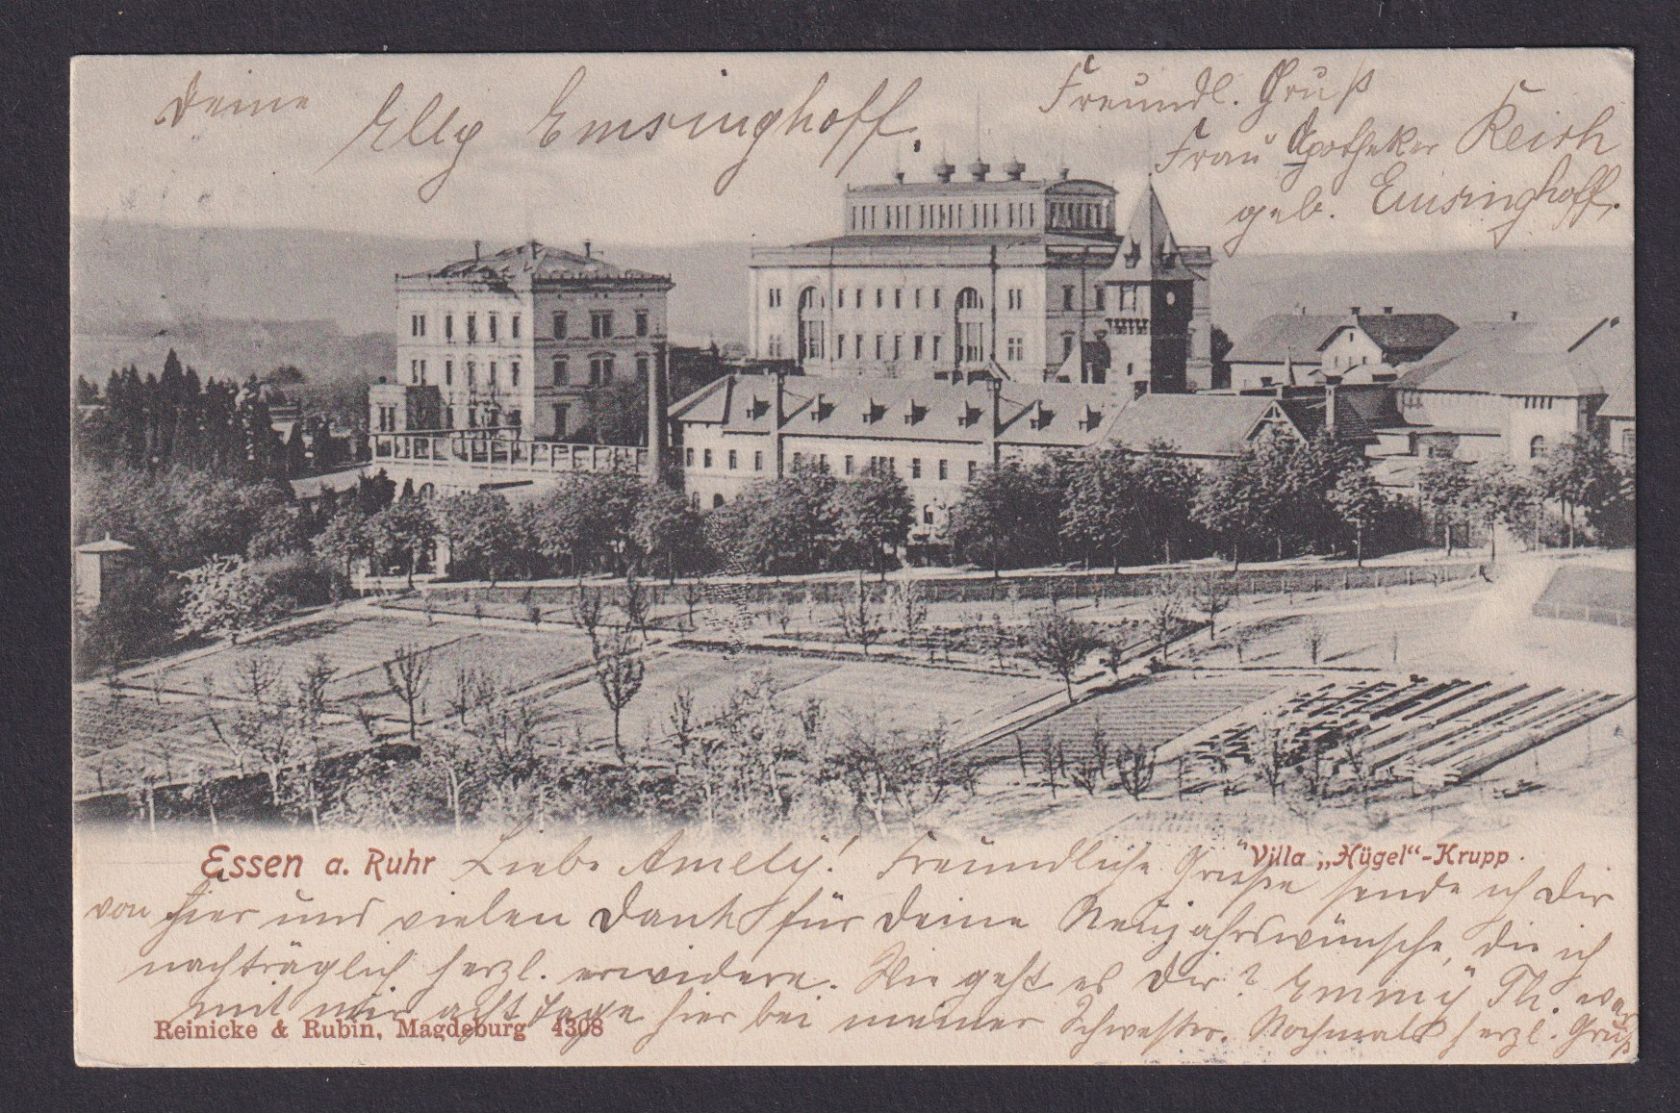 Deine
Elly Emsinghoff.
Freundl. Gruß
Frau Apotheker
geb. Emsinghoff.
Essen a. Ruhr
Villa „Hügel“-Krupp.
Liebe Amely! Freundliche Grüße sende ich Dir
von hier und vielen Dank für Deine Neujahrswünsche, die ich
nachträglich herzl. erwidere. Wie geht es Dir? Emmy Th. war
mit mir acht Tage hier bei meiner Schwester. Nochmals herzl. Gruß
Reinicke & Rubin, Magdeburg 4308